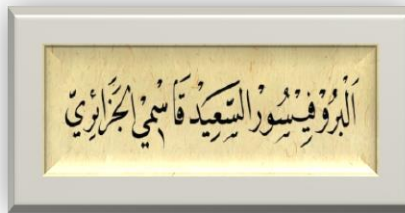 اَلْبرُوْفِيْسُورْ السَّعِيْدْ قَاسْمِيْ الجَزَائِرِيّ